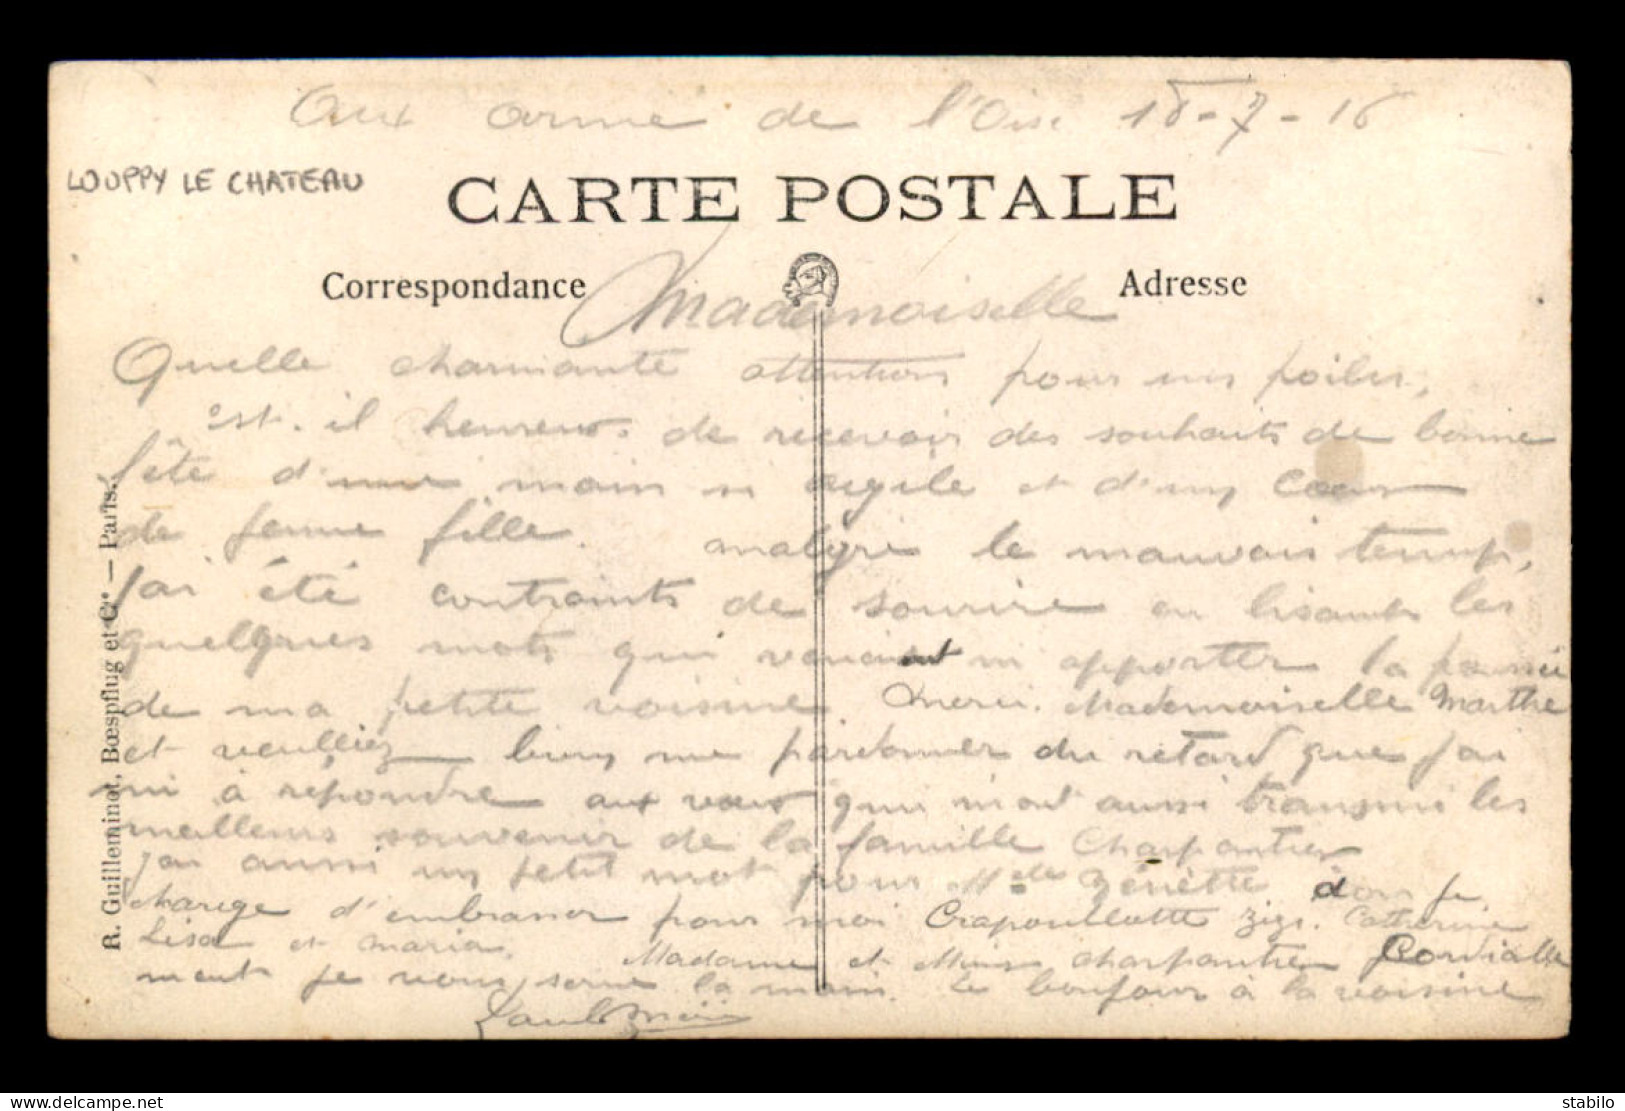 Aux armé de l'Oise 18-7-16
LOUPPY LE CHATEAU
CARTE POSTALE
Correspondance
Adresse
Mademoiselle
Quelle charmante attention pour un poilu,
est-il heureux de recevoir des souhaits de bonne
fête d'une main si agile et d'un coeur
de jeune fille. malgré le mauvais temps,
j'ai été contraints de sourire en lisant les
quelques mots qui venaient m apporter la pensée
de ma petite voisine Merci Mademoiselle Marthe
et veuilliez bien me pardonner du retard que j'ai
mi à répondre aux voeux qui m'ont aussi transmi les
meilleurs souvenir de la famille Charpentier
j'ai aussi un petit mot pour Melle Zénette dont je
charge d'embrasser pour moi Crapouillotte Zizi. Catherine
Lisa et Maria. Madame et Mr Charpentier Cordialle
ment je vous serre la main. Le bonjour à la voisine
R. Guilleminot, Bœspflug et Cie — Paris.